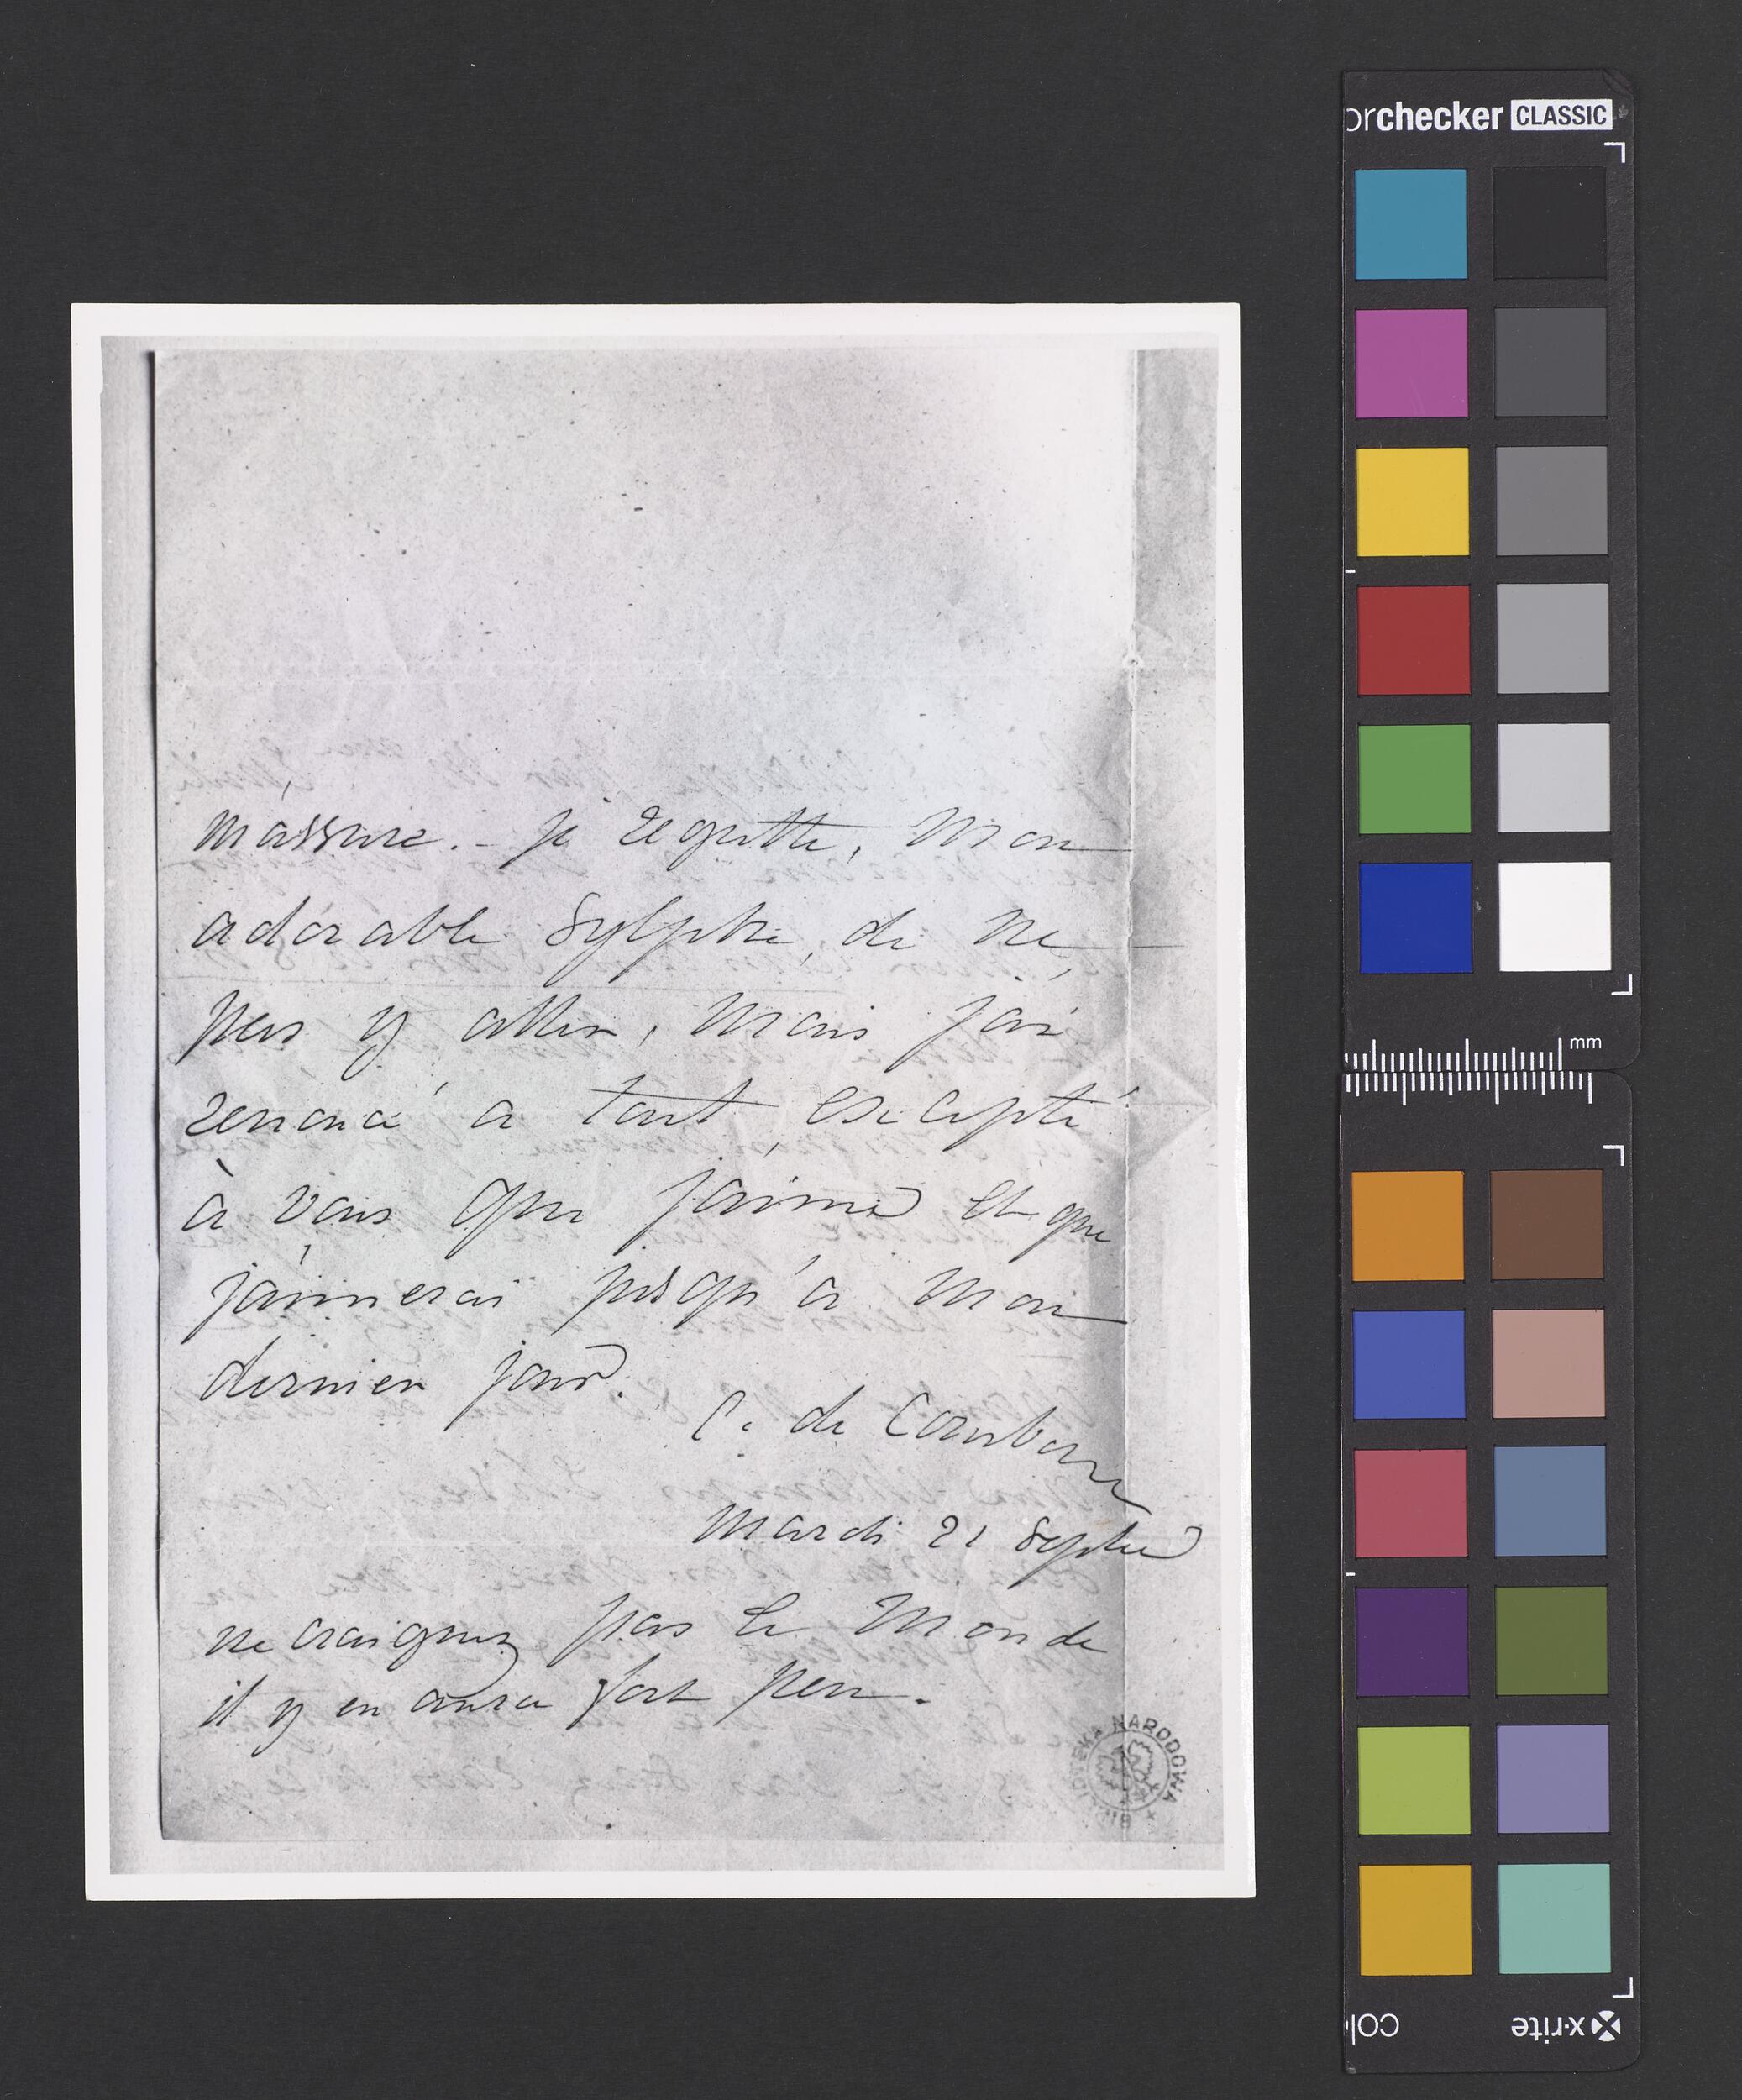 m'assure. - je regrette, mon
adorable Sylphe, de ne
pas y aller, mais j'ai
renoncé a tout excepté
à vous que j'aime et que
j'aimerai jusqu'a mon
dernier jour.
C. de Courbonne
mardi 21 Septbre
ne craignez pas le monde
il y en aura fort peu.
BIBLIOTEKA NARODOWA
orchecker CLASSIC
mm
x-rite
col